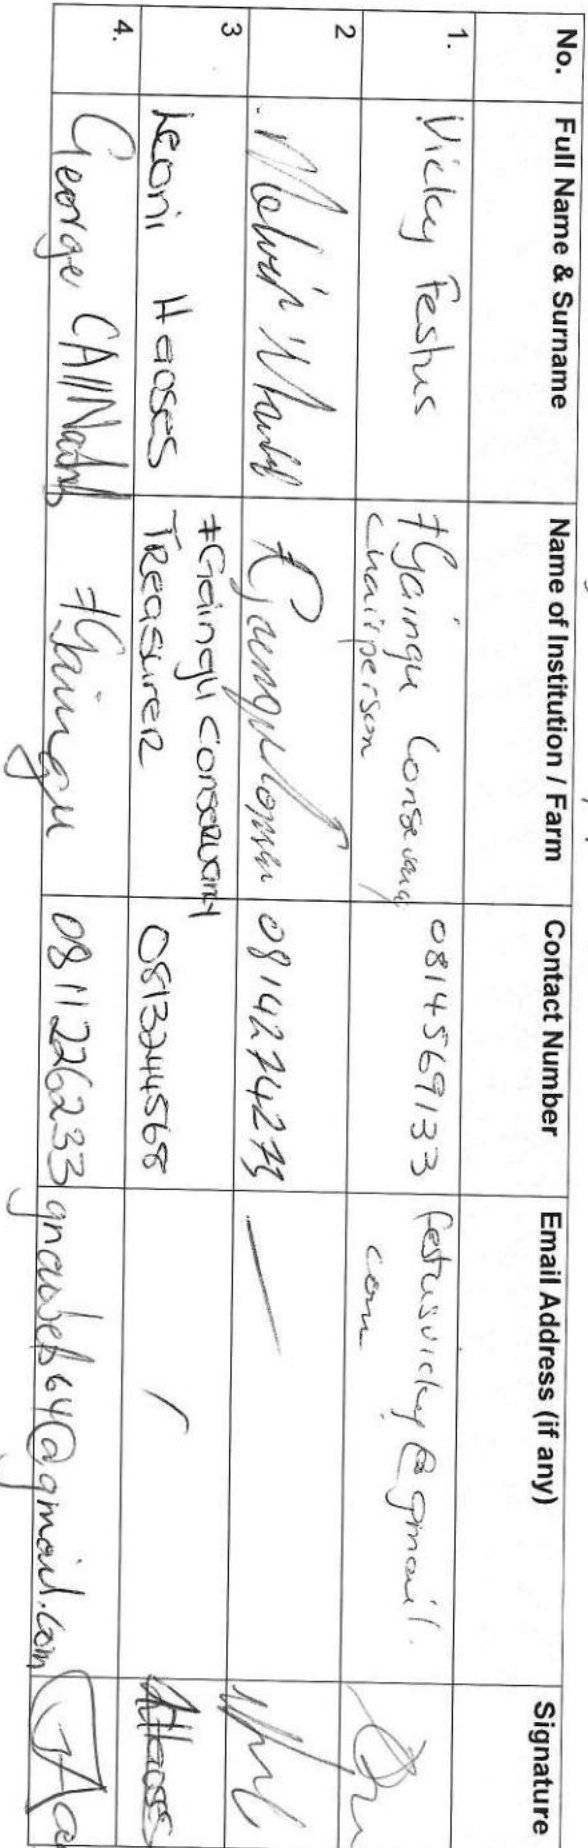 No. Full Name & Surname Name of Institution / Farm Contact Number Email Address (if any) Signature
1. Vicky Festus ǂGaingu Conservancy 0814569133 festusvicky@gmail.
Chairperson com
2
0814274279
3 Leoni Haoses ǂGaingu Conservancy 0813244568
TREASURER
4. George ǂGaingu 0811226233 gnaobeb64@gmail.com